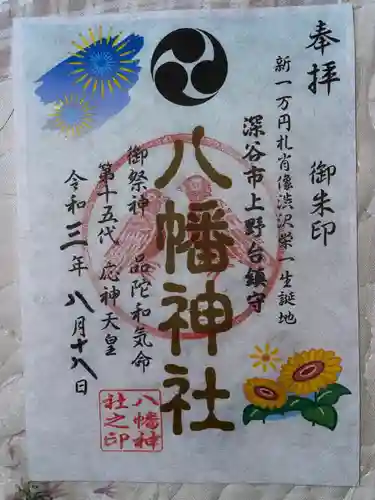 奉拝 御朱印
新一万円札肖像渋沢栄一生誕地
深谷市上野台鎮守
八幡神社
御祭神 品陀和気命
第十五代 応神天皇
令和三年八月十八日
八幡神社之印